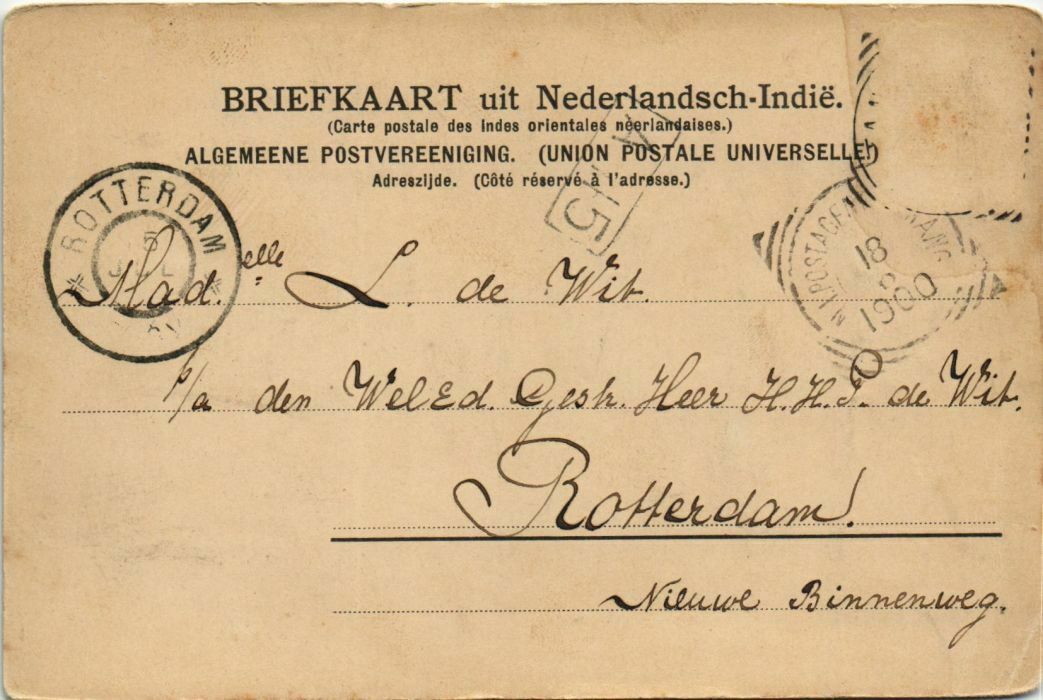 BRIEFKAART uit Nederlandsch-Indië.
(Carte postale des Indes orientales néerlandaises.)
ALGEMEENE POSTVEREENIGING. (UNION POSTALE UNIVERSELLE.)
Adreszijde. (Côté réservé à l'adresse.)
ROTTERDAM
5
JUL
N.I. POSTAGENT
18
1900
15
Mad.elle L. de Wit.
p/a den WelEd. Gestr. Heer H.H.J. de Wit.
Rotterdam.
Nieuwe Binnenweg.